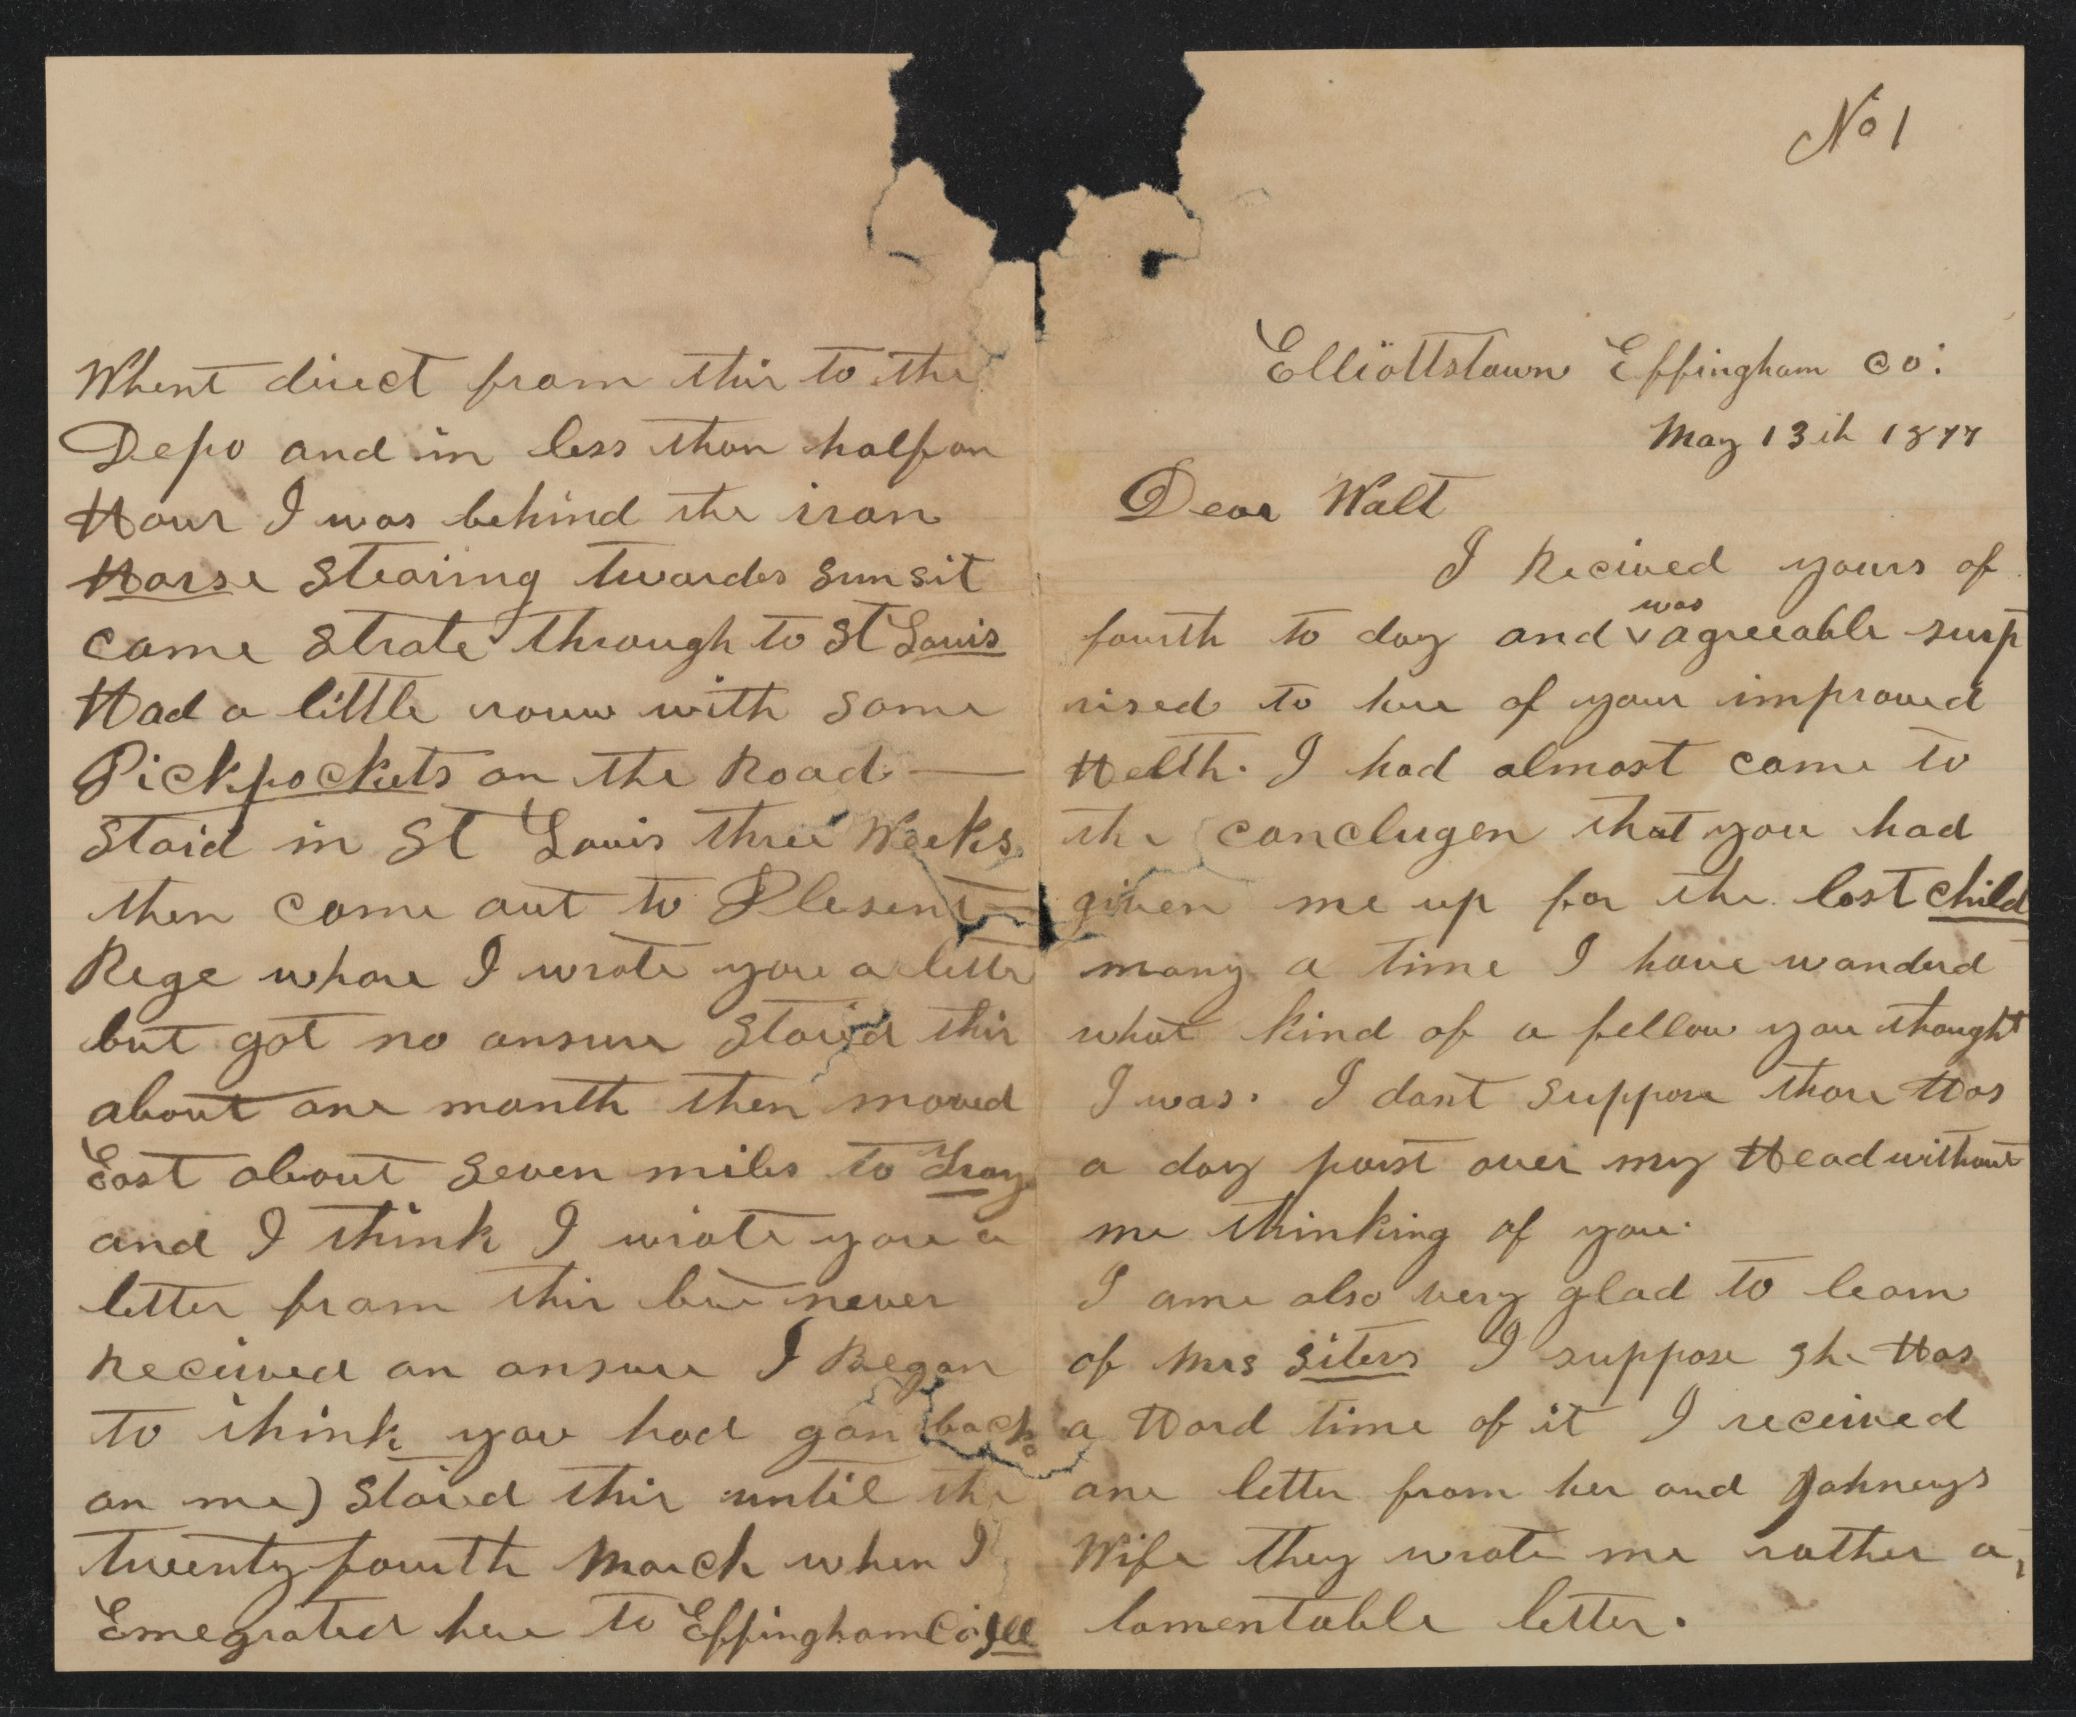 No 1
Elliottstown Effingham Co:
May 13th 1877
Dear Walt
I Recived yours of
fourth to day and was agreeable surp
rised to here of your improved
Helth. I had almost came to
the conclugen that you had
given me up for the lost child
many a time I have wanderd
what kind of a fellow you thought
I was. I dont suppose thare Has
a day past over my Head without
me thinking of you.
I ame also very glad to learn
of Mrs Siters I suppose she Has
a Hard time of it I received
one letter from her and Johneys
Wife they wrote me rather a
lamentable letter.
Whent direct from thir to the
Depo and in less than half an
Hour I was behind the iron
Horse Stearing twardes sunsit
came strate through to St Louis
Had a little rouw with some
Pickpockets on the Road —
staid in St Louis three Weeks
then came out to Plesent
Rege whare I wrote you a letter
but got no ansure staid thir
about one month then moved
East about seven miles to Troy
and I think I wrote you a
letter from thir but never
Received an ansure I Began
to think you had gon back
on me) staied thir until the
twenty fourth March when I
Emegrated here to Effingham Co Ill